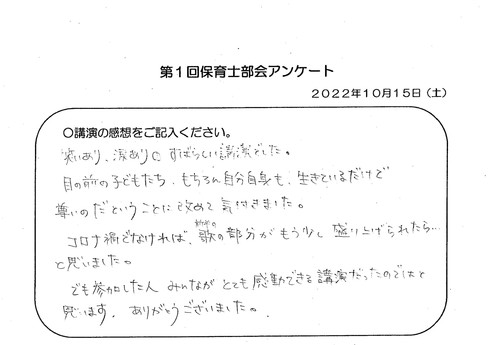 第1回保育士部会アンケート
2022年10月15日(土)
○講演の感想をご記入ください。
笑いあり、涙ありの すばらしい講演でした。
目の前の子どもたち、もちろん自分自身も、生きているだけで
尊いのだということに改めて気付きました。
コロナ禍でなければ、歌の部分がもう少し盛り上げられたら…
と思いました。
でも参加した人 みんなが とても感動できる講演だったのではと
思います。ありがとうございました。